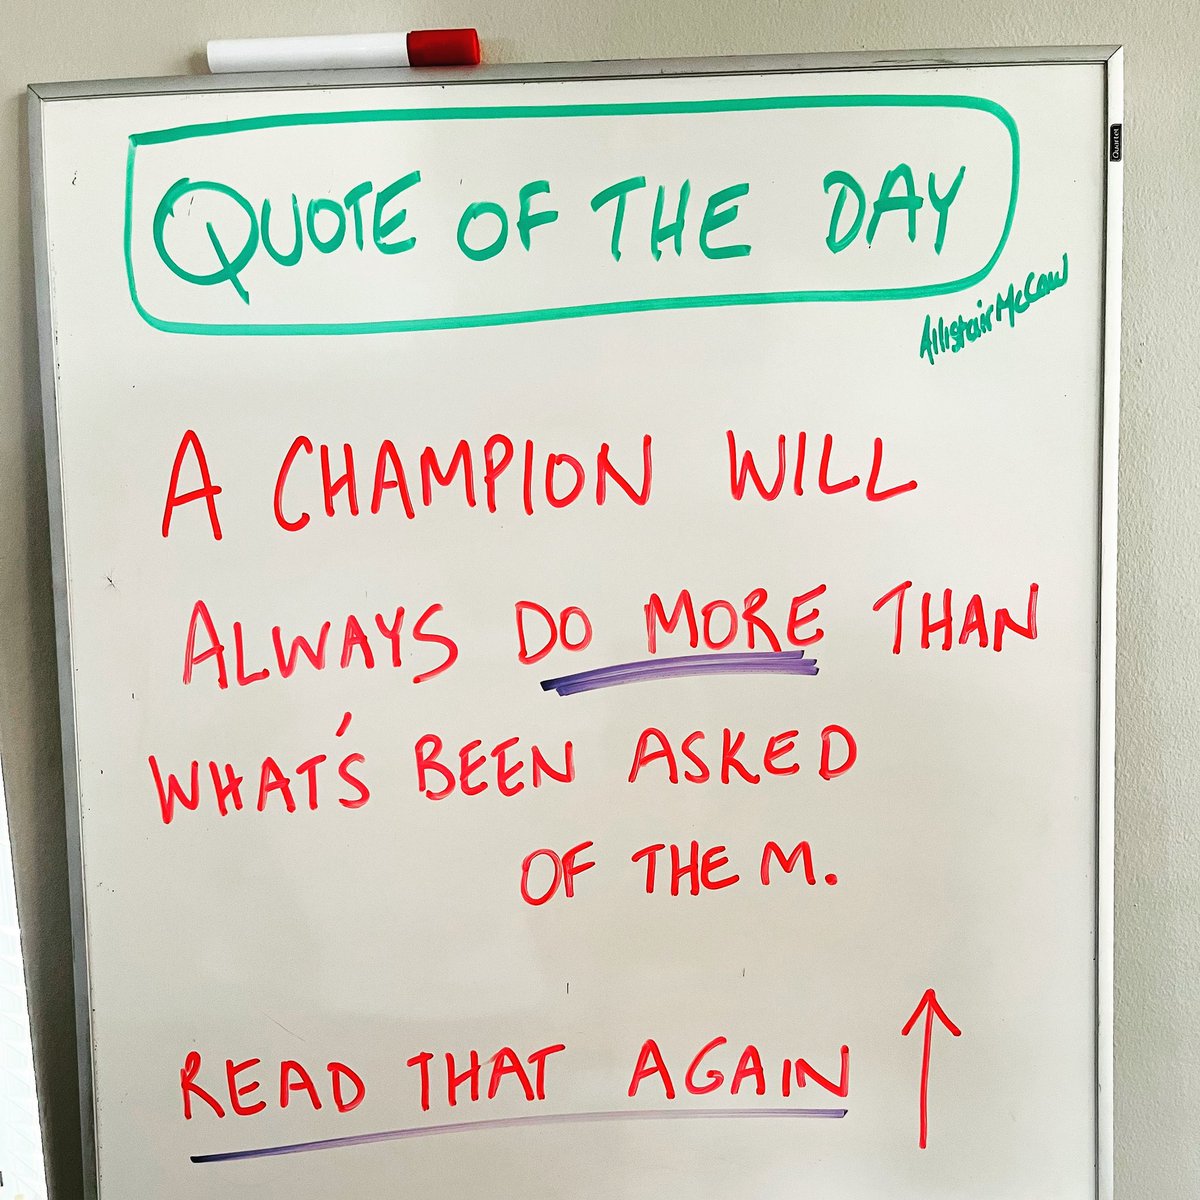 QUOTE OF THE DAY
Quartet
Allistair McCaw
A CHAMPION WILL
ALWAYS DO MORE THAN
WHAT'S BEEN ASKED
OF THEM.
READ THAT AGAIN